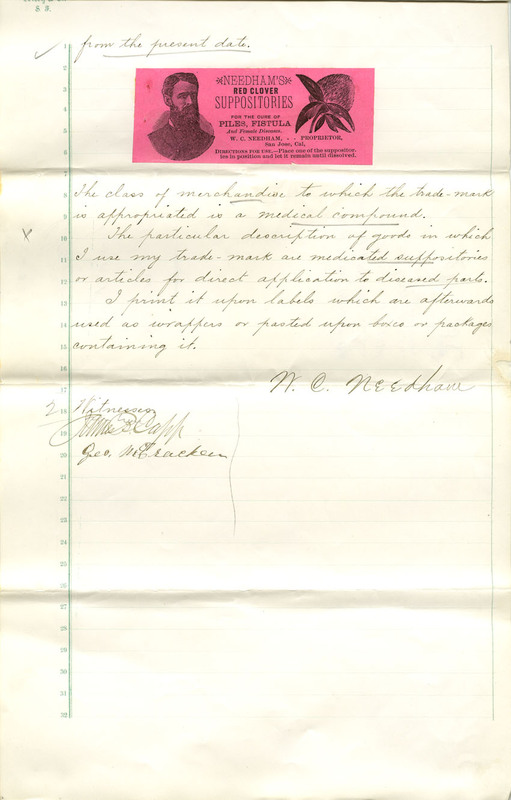 S. F.
1 from the present date.
2
3
4
5
6
7
NEEDHAM'S
RED CLOVER
SUPPOSITORIES
FOR THE CURE OF
PILES, FISTULA
And Female Diseases.
W. C. NEEDHAM, - - PROPRIETOR,
San Jose, Cal,
DIRECTIONS FOR USE.—Place one of the supposito-
ries in position and let it remain until dissolved.
8 The class of merchandise to which the trade-mark
9 is appropriated is a medical compound.
X 10 The particular description of goods in which
11 I use my trade-mark are medicated suppositories
12 or articles for direct application to diseased parts.
13 I print it upon labels which are afterwards
14 used as wrappers or pasted upon boxes or packages
15 containing it.
16
17 W. C. Needham
2 18 Witnesses
19 Capp
20 Geo. McCracken
21
22
23
24
25
26
27
28
29
30
31
32